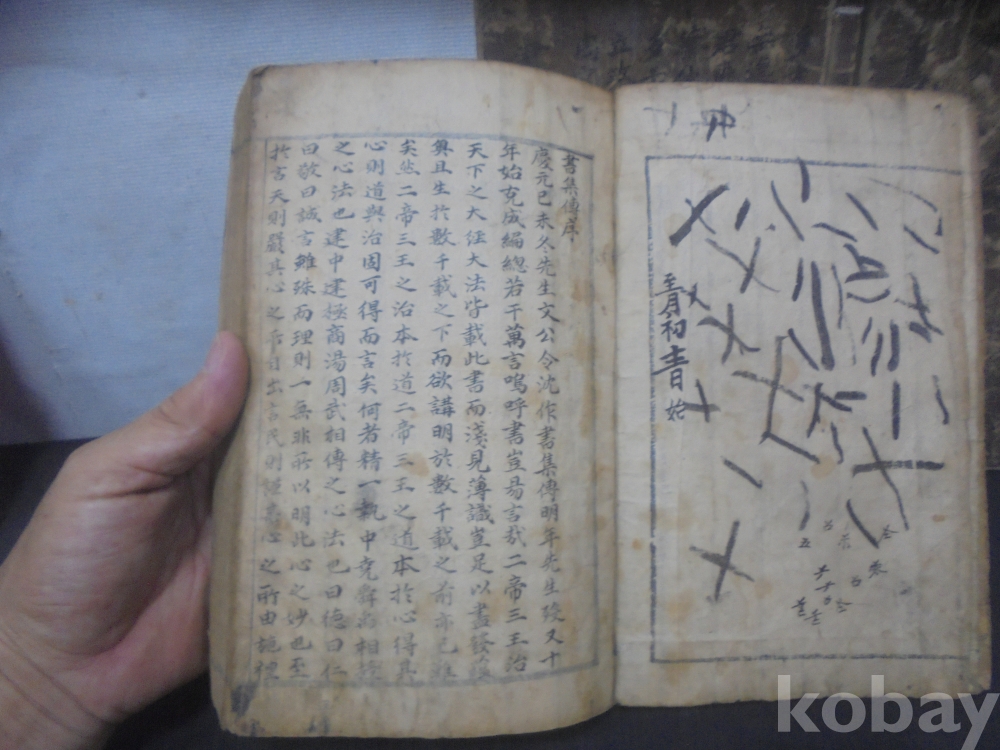 月初
日
始
書集傳序
慶元已未冬先生文公令沈作書集傳明年先生歿又十
年始克成編總若干萬言嗚呼書豈易言哉二帝三王治
天下之大經大法皆載此書而淺見薄識豈足以盡發蘊
奧且生於數千載之下而欲講明於數千載之前亦已難
矣然二帝三王之治本於道二帝三王之道本於心得其
心則道與治固可得而言矣何者精一執中堯舜禹相授
之心法也建中建極商湯周武相傳之心法也曰德曰仁
曰敬曰誠言雖殊而理則一無非所以明此心之妙也至
於言天則嚴其心之所自出言民則謹其心之所由施禮
kobay